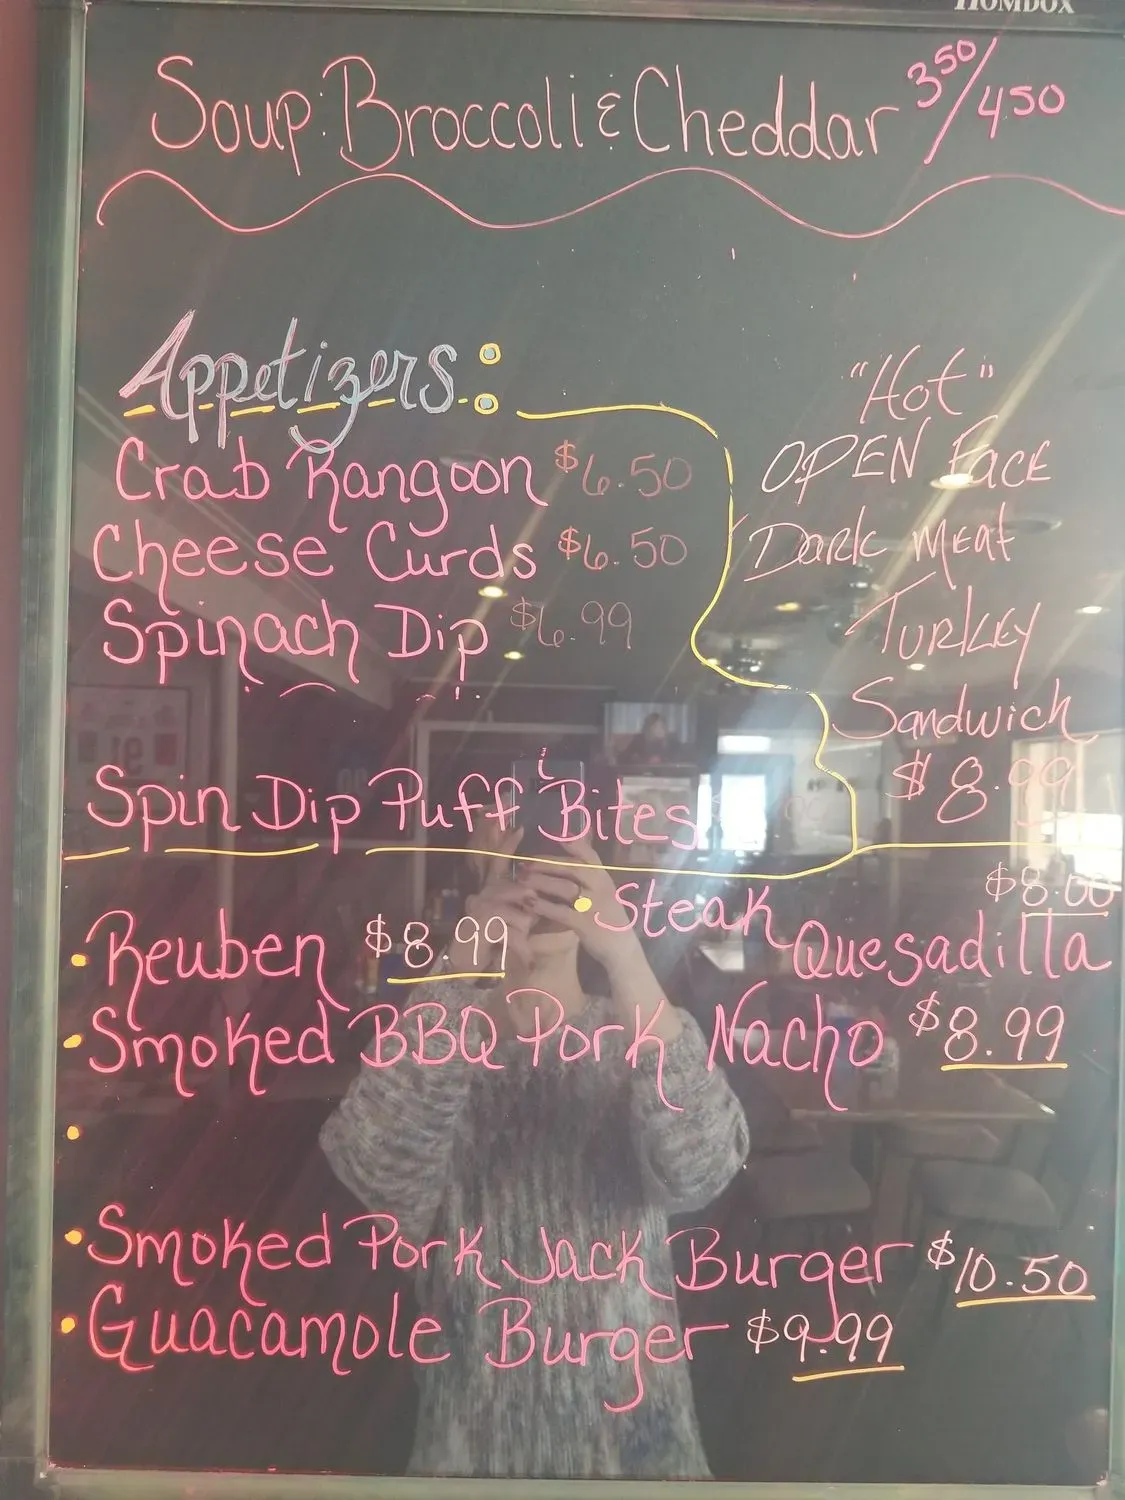 HOMDOX
Soup: Broccoli & Cheddar 350/450
Appetizers:
Crab Rangoon $6.50
Cheese Curds $6.50
Spinach Dip $6.99
Spin Dip Puff Bites
"Hot"
OPEN FACE
Dark Meat
TURKEY
Sandwich
$8.99
• Reuben $8.99
• Steak Quesadilla $8.00
• Smoked BBQ Pork Nacho $8.99
•
• Smoked Pork Jack Burger $10.50
• Guacamole Burger $9.99